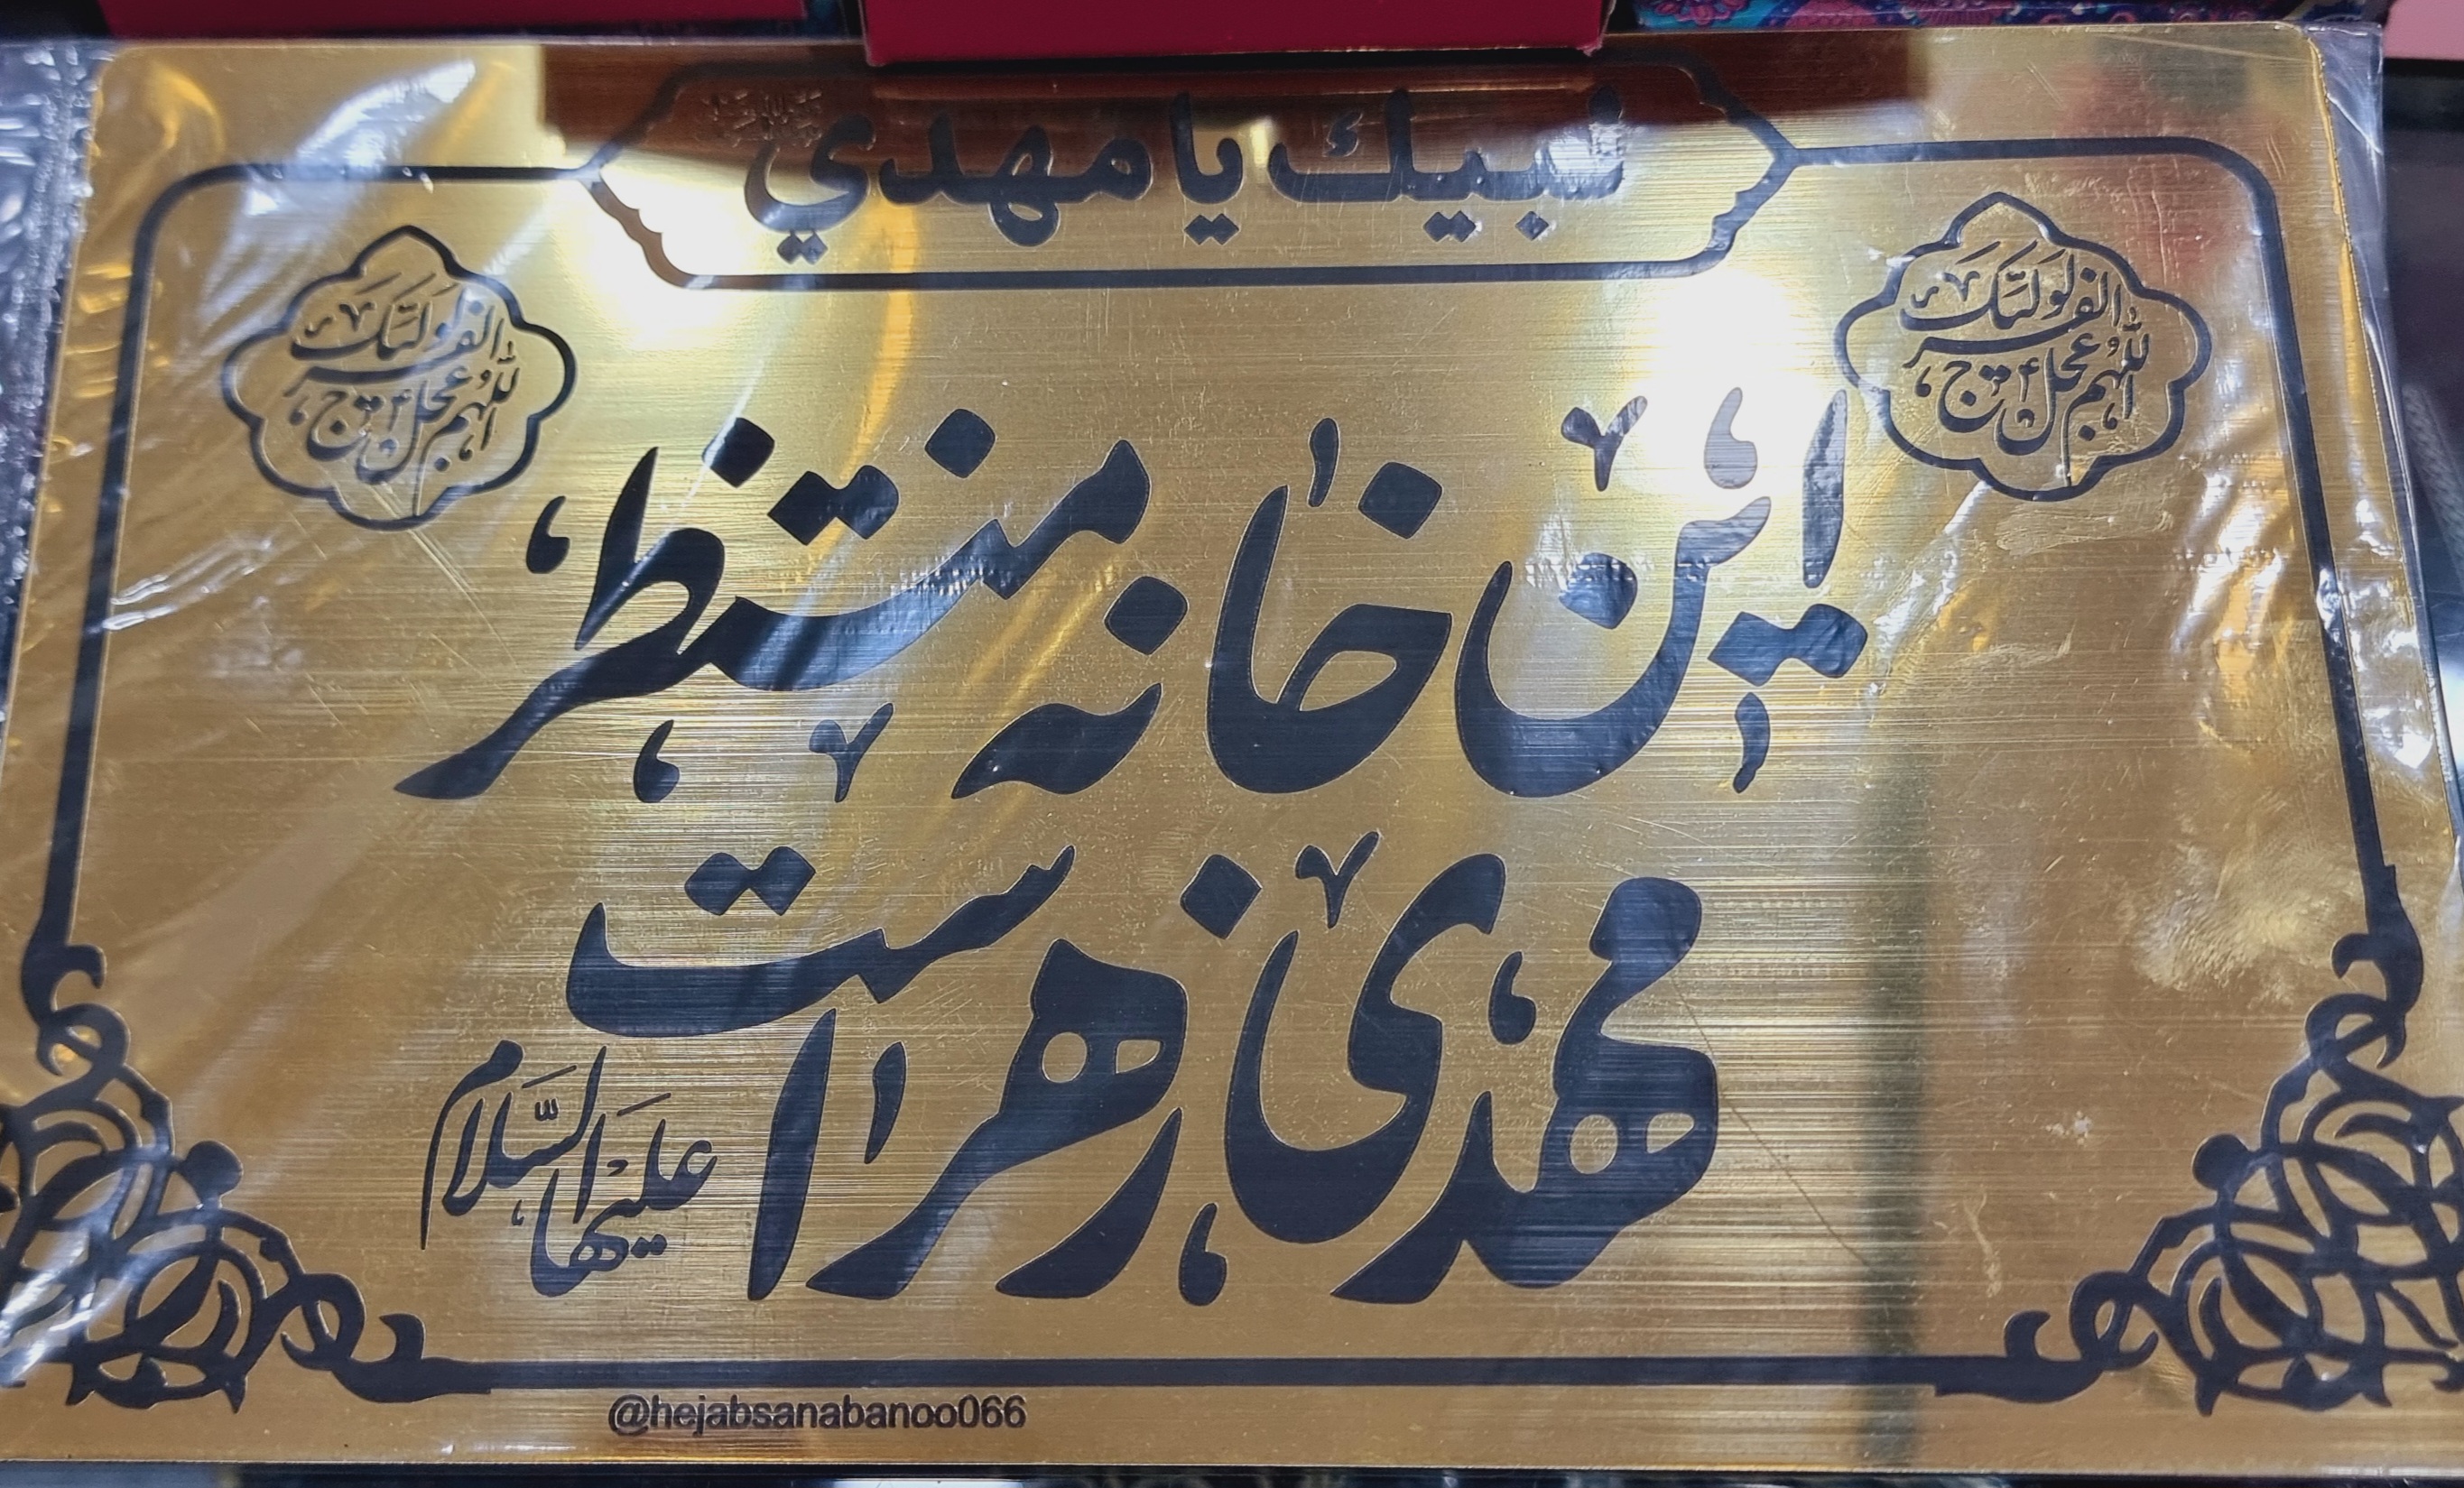 لبيك يا مهدي
اللهم عجل لوليك الفرج
اللهم عجل لوليك الفرج
این خانه منتظر
مهدی زهراست
علیها السّلام
@hejabsanabanoo066